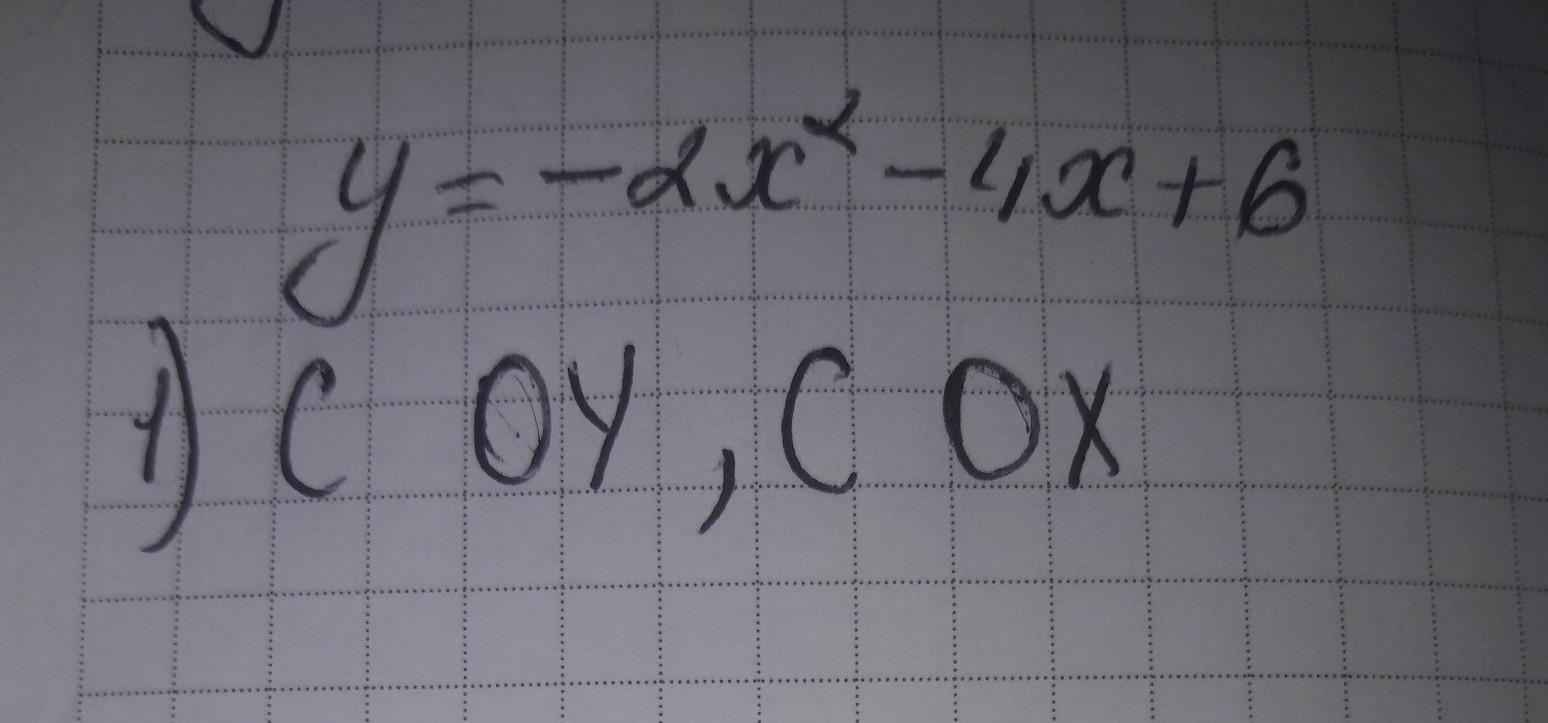 y = -2x² - 4x + 6
1) С ОУ, С ОХ